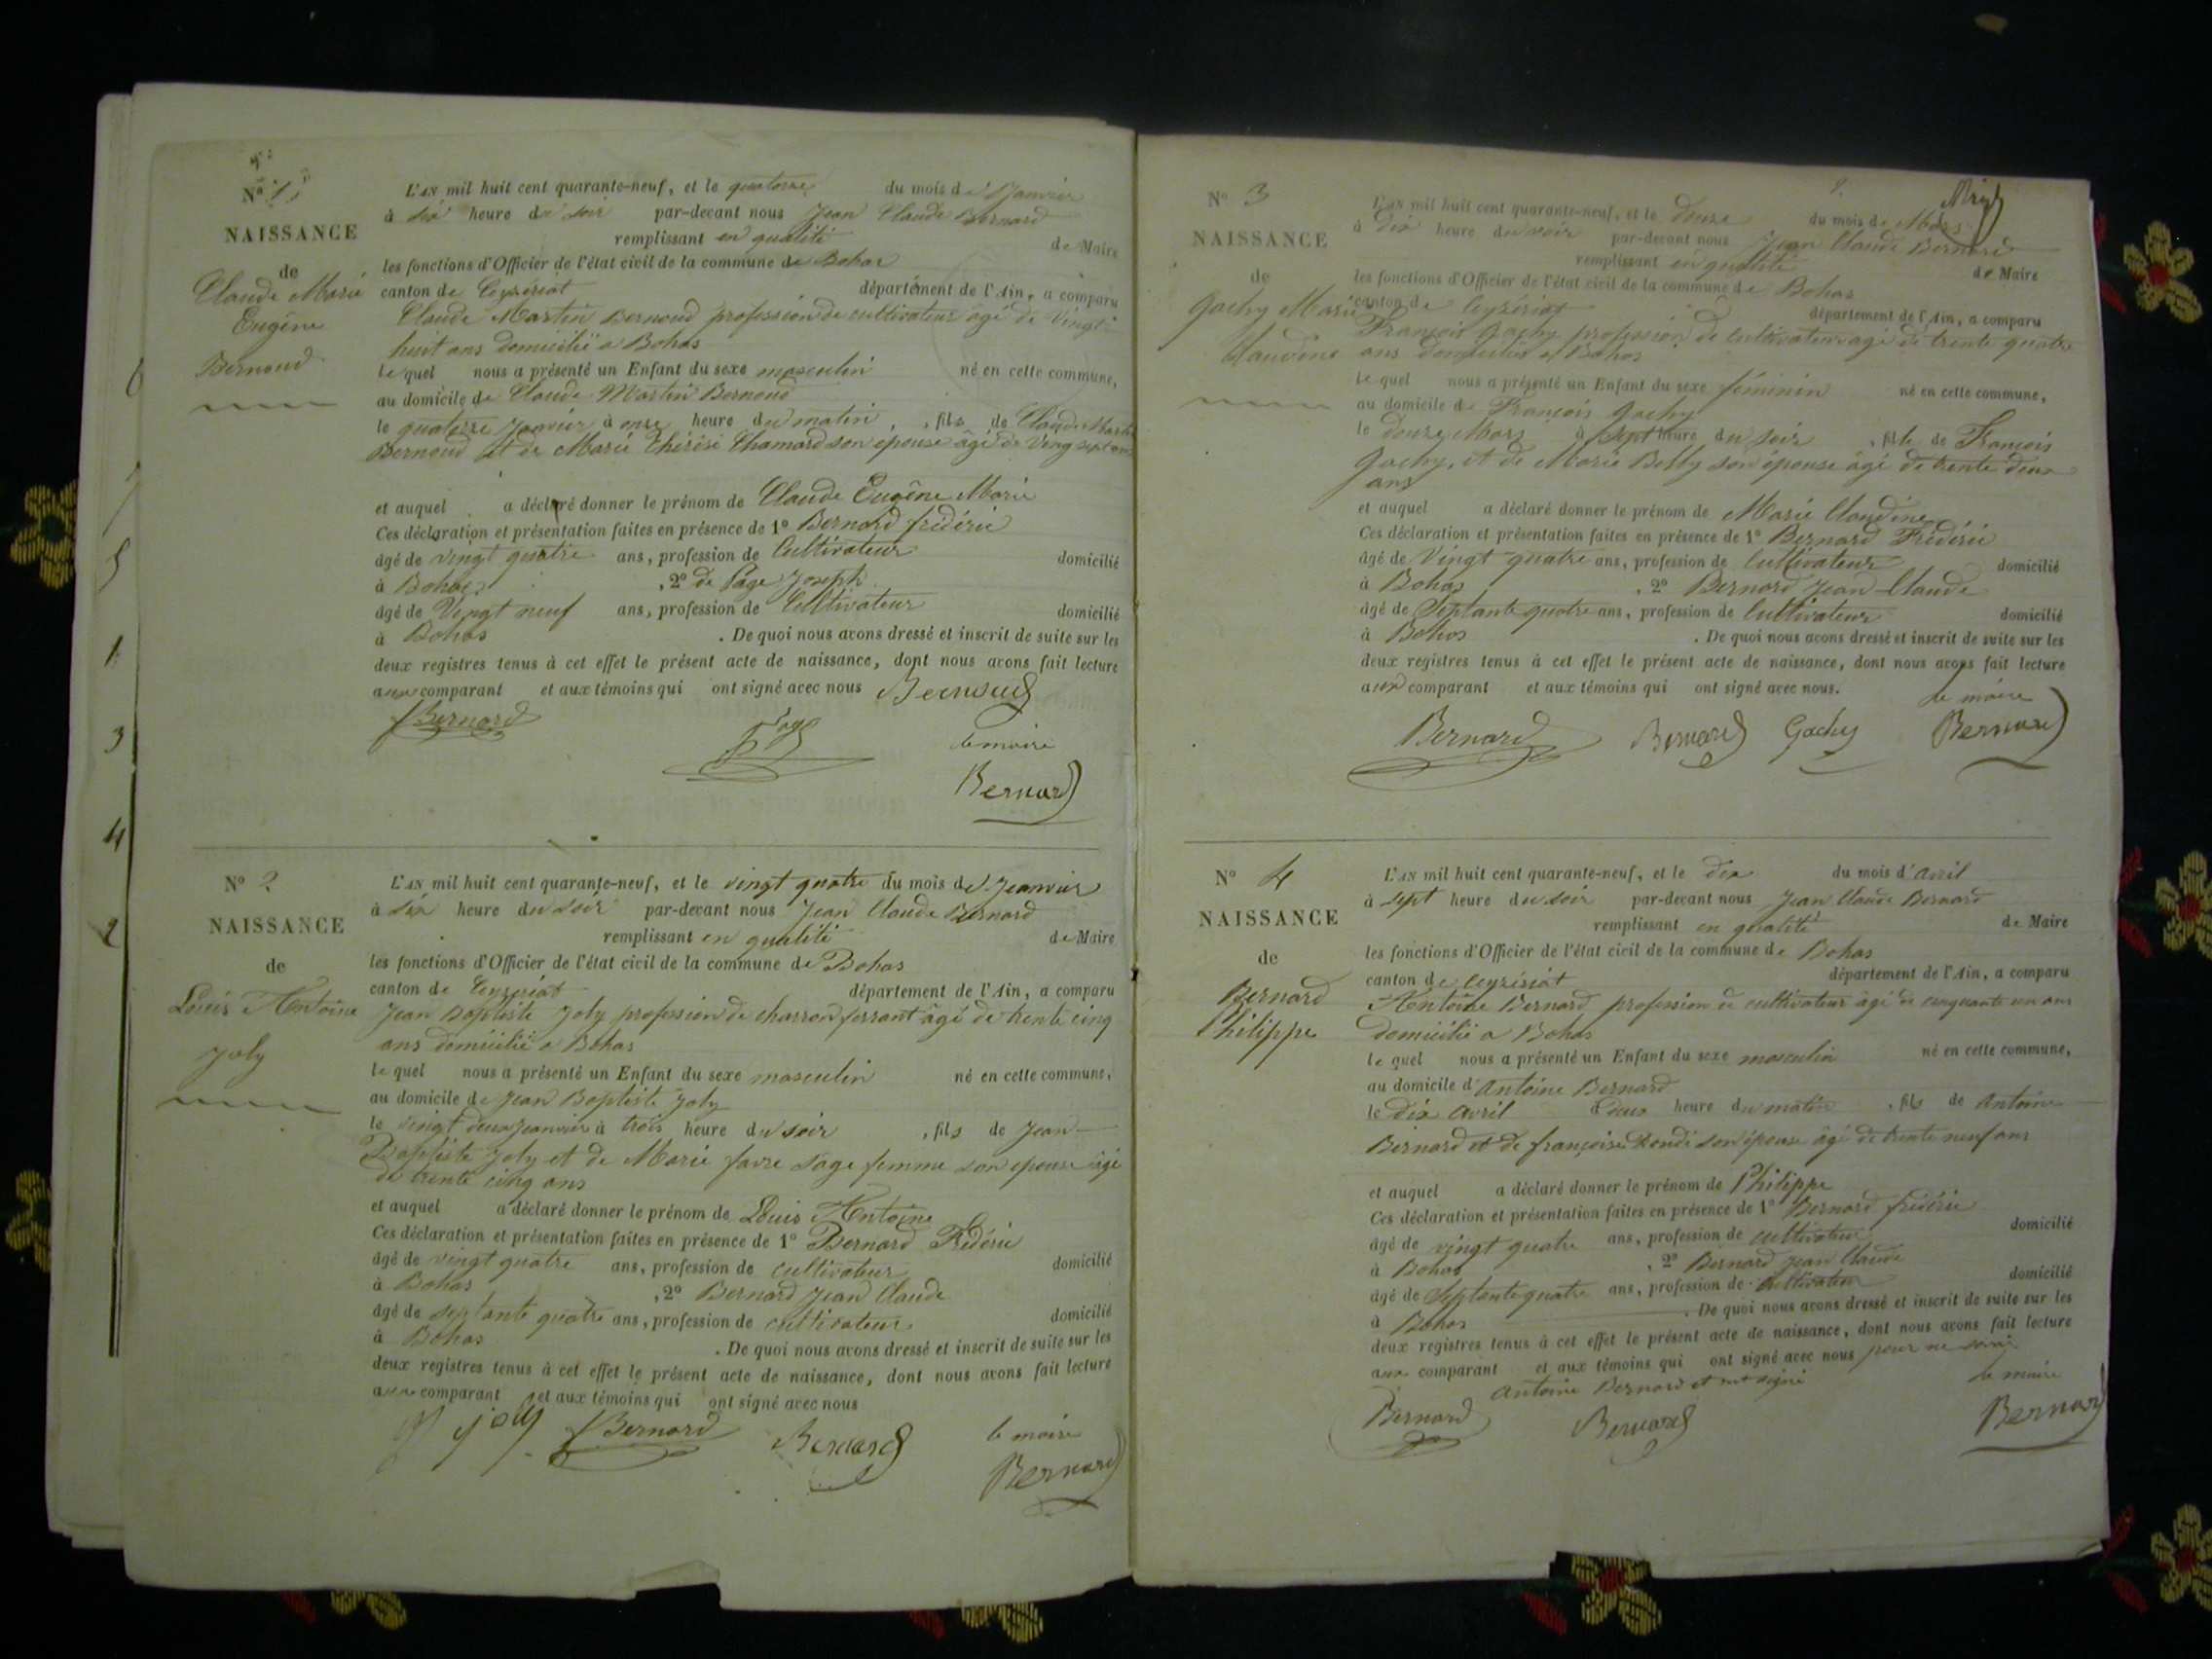 Nº 1
NAISSANCE
de
Claude Marie
Eugêne
Bernoud
L'AN mil huit cent quarante-neuf, et le quatorze du mois de Janvier
à six heure du soir par-devant nous Jean Claude Bernard
remplissant en qualité de Maire
les fonctions d'Officier de l'état civil de la commune de Bohas
canton de Ceyzériat département de l'Ain, a comparu
Claude Martin Bernoud profession de cultivateur agé de vingt
huit ans domicilié a Bohas
le quel nous a présenté un Enfant du sexe masculin né en cette commune,
au domicile de Claude Martin Bernoud
le quatorze Janvier à onze heure du matin, fils de Claude Martin
Bernoud et de Marie Thérèse Chamard son épouse âgé de Ving sept ans
et auquel a déclaré donner le prénom de Claude Eugêne Marie
Ces déclaration et présentation faites en présence de 1º Bernard frédéric
âgé de vingt quatre ans, profession de Cultivateur domicilié
à Bohas, 2º de Page Joseph
âgé de Vingt neuf ans, profession de Cultivateur domicilié
à Bohas. De quoi nous avons dressé et inscrit de suite sur les
deux registres tenus à cet effet le présent acte de naissance, dont nous avons fait lecture
aux comparant et aux témoins qui ont signé avec nous Bernoud
Bernard Page le maire
Bernard
Nº 2
NAISSANCE
de
Louis Antoine
Joly
L'AN mil huit cent quarante-neuf, et le vingt quatre du mois de Jeanvier
à six heure du soir par-devant nous Jean Claude Bernard
remplissant en qualité de Maire
les fonctions d'Officier de l'état civil de la commune de Bohas
canton de Ceyzériat département de l'Ain, a comparu
Jean Baptiste Joly profession de charron ferrant âgé de trente cinq
ans domicilié a Bohas
le quel nous a présenté un Enfant du sexe masculin né en cette commune,
au domicile de Jean Baptiste Joly
le vingt deux Jeanvier à trois heure du soir, fils de Jean
Baptiste Joly et de Marie favre sage femme son epouse âgé
de trente cinq ans
et auquel a déclaré donner le prénom de Louis Antoine
Ces déclaration et présentation faites en présence de 1º Bernard Frédéric
âgé de vingt quatre ans, profession de cultivateur domicilié
à Bohas, 2º Bernard Jean Claude
âgé de septante quatre ans, profession de cultivateur domicilié
à Bohas. De quoi nous avons dressé et inscrit de suite sur les
deux registres tenus à cet effet le présent acte de naissance, dont nous avons fait lecture
aux comparant et aux témoins qui ont signé avec nous
joly Bernard Bernard le maire
Bernard
6
5
1
3
4
2
Nº 3
NAISSANCE
de
Gachy Marie
Claudine
L'AN mil huit cent quarante-neuf, et le douze du mois de Mars
à dix heure du soir par-devant nous Jean Claude Bernard
remplissant en qualité de Maire
les fonctions d'Officier de l'état civil de la commune de Bohas
canton de Ceyzériat département de l'Ain, a comparu
François Gachy profession de cultivateur agé de trente quatre
ans domicilié a Bohas
le quel nous a présenté un Enfant du sexe féminin né en cette commune,
au domicile de François Gachy
le douze Mars à sept heure du soir, fille de François
Gachy, et de Marie Bolly son épouse âgé de trente deux
ans
et auquel a déclaré donner le prénom de Marie Claudine
Ces déclaration et présentation faites en présence de 1º Bernard Frédéric
âgé de Vingt quatre ans, profession de Cultivateur domicilié
à Bohas, 2º Bernard Jean Claude
âgé de Septante quatre ans, profession de Cultivateur domicilié
à Bohas. De quoi nous avons dressé et inscrit de suite sur les
deux registres tenus à cet effet le présent acte de naissance, dont nous avons fait lecture
aux comparant et aux témoins qui ont signé avec nous.
le maire
Bernard Bernard Gachy Bernard
Nº 4
NAISSANCE
de
Bernard
Philippe
L'AN mil huit cent quarante-neuf, et le dix du mois d'avril
à sept heure du soir par-devant nous Jean Claude Bernard
remplissant en qualité de Maire
les fonctions d'Officier de l'état civil de la commune de Bohas
canton de Ceyzériat département de l'Ain, a comparu
Antoine Bernard profession de cultivateur âgé de cinquante un ans
domicilié a Bohas
le quel nous a présenté un Enfant du sexe masculin né en cette commune,
au domicile d'Antoine Bernard
le dix avril à deux heure du matin, fils de Antoine
Bernard et de françoise son épouse âgé de trente neuf ans
et auquel a déclaré donner le prénom de Philippe
Ces déclaration et présentation faites en présence de 1º Bernard frédéric
âgé de vingt quatre ans, profession de cultivateur domicilié
à Bohas, 2º Bernard Jean Claude
âgé de Septante quatre ans, profession de cultivateur domicilié
à Bohas. De quoi nous avons dressé et inscrit de suite sur les
deux registres tenus à cet effet le présent acte de naissance, dont nous avons fait lecture
aux comparant et aux témoins qui ont signé avec nous pour ne savoir
Antoine Bernard et ont signé le maire
Bernard Bernard Bernard